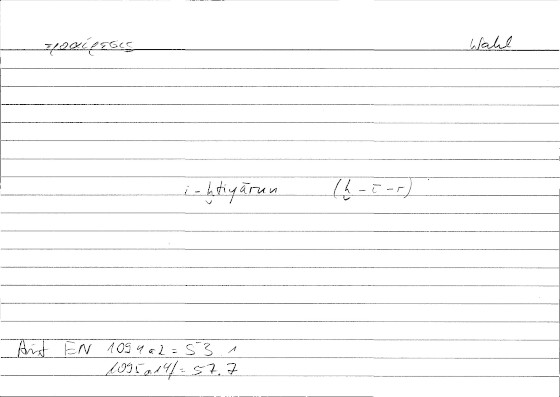 προαίρεσις Wahl
i-ḫtiyārun (ḫ-ī-r)
Arist EN 1094a2 = 53 1
1095a14f = 57.7